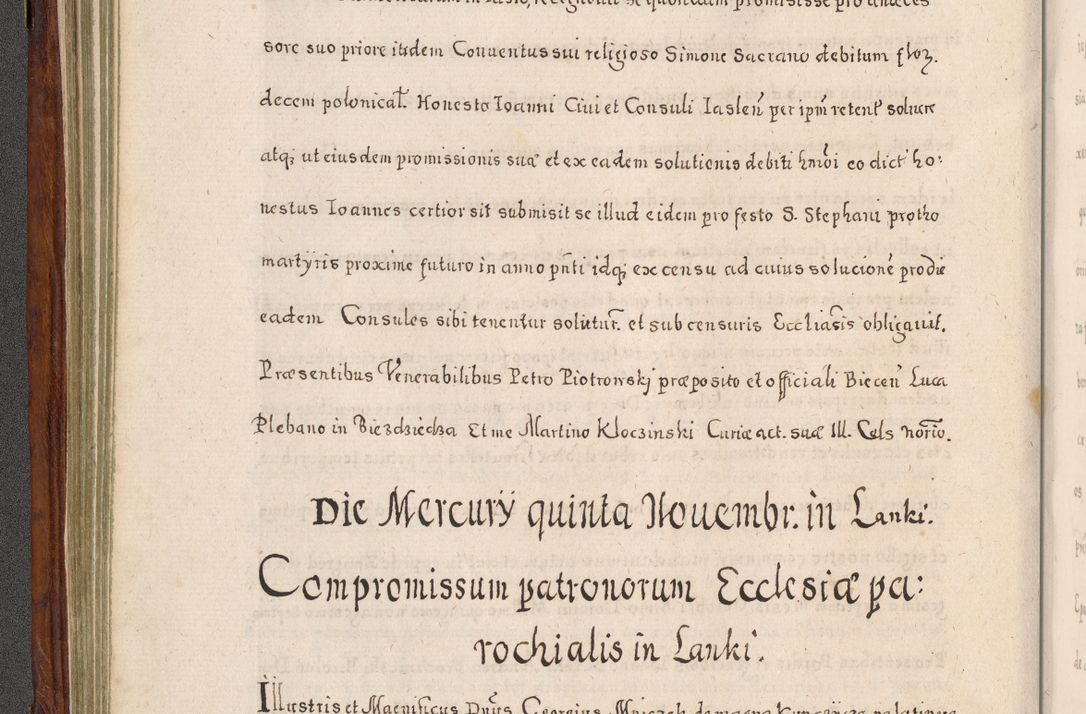 sore suo priore itidem Conuentus sui religioso Simone Sacrano debitum floz.
decem polonical. Honesto Ioanni Ciui et Consuli Iaslen̄ per ipm̄ retent' soluere
atq; ut eiusdem promissionis suæ et ex eadem solutionis debiti hm̄oi eo dict' ho:
nestus Ioannes certior sit submisit se illud eidem pro festo S. Stephani protho
martyris proxime futuro in anno pn̄ti idq; ex censu ad cuius solucionē prodie
eadem Consules sibi tenentur soluturū et sub censuris Eccliasis obligauit.
Præsentibus Venerabilibus Petro Piotrowskj præposito et officiali Biecen̄ Luca
Plebano in Biezdziedza Et me Martino Kloczinski Curiæ act. suæ Ill. Cels norio.
Die Mercurÿ quinta Nouembr. in Lanki.
Compromissum patronorum Ecclesiæ pa:
rochialis in Lanki.
Illustris et Magnificus Dnūs Georgius Mniszek de magna Kunczicze palatinus